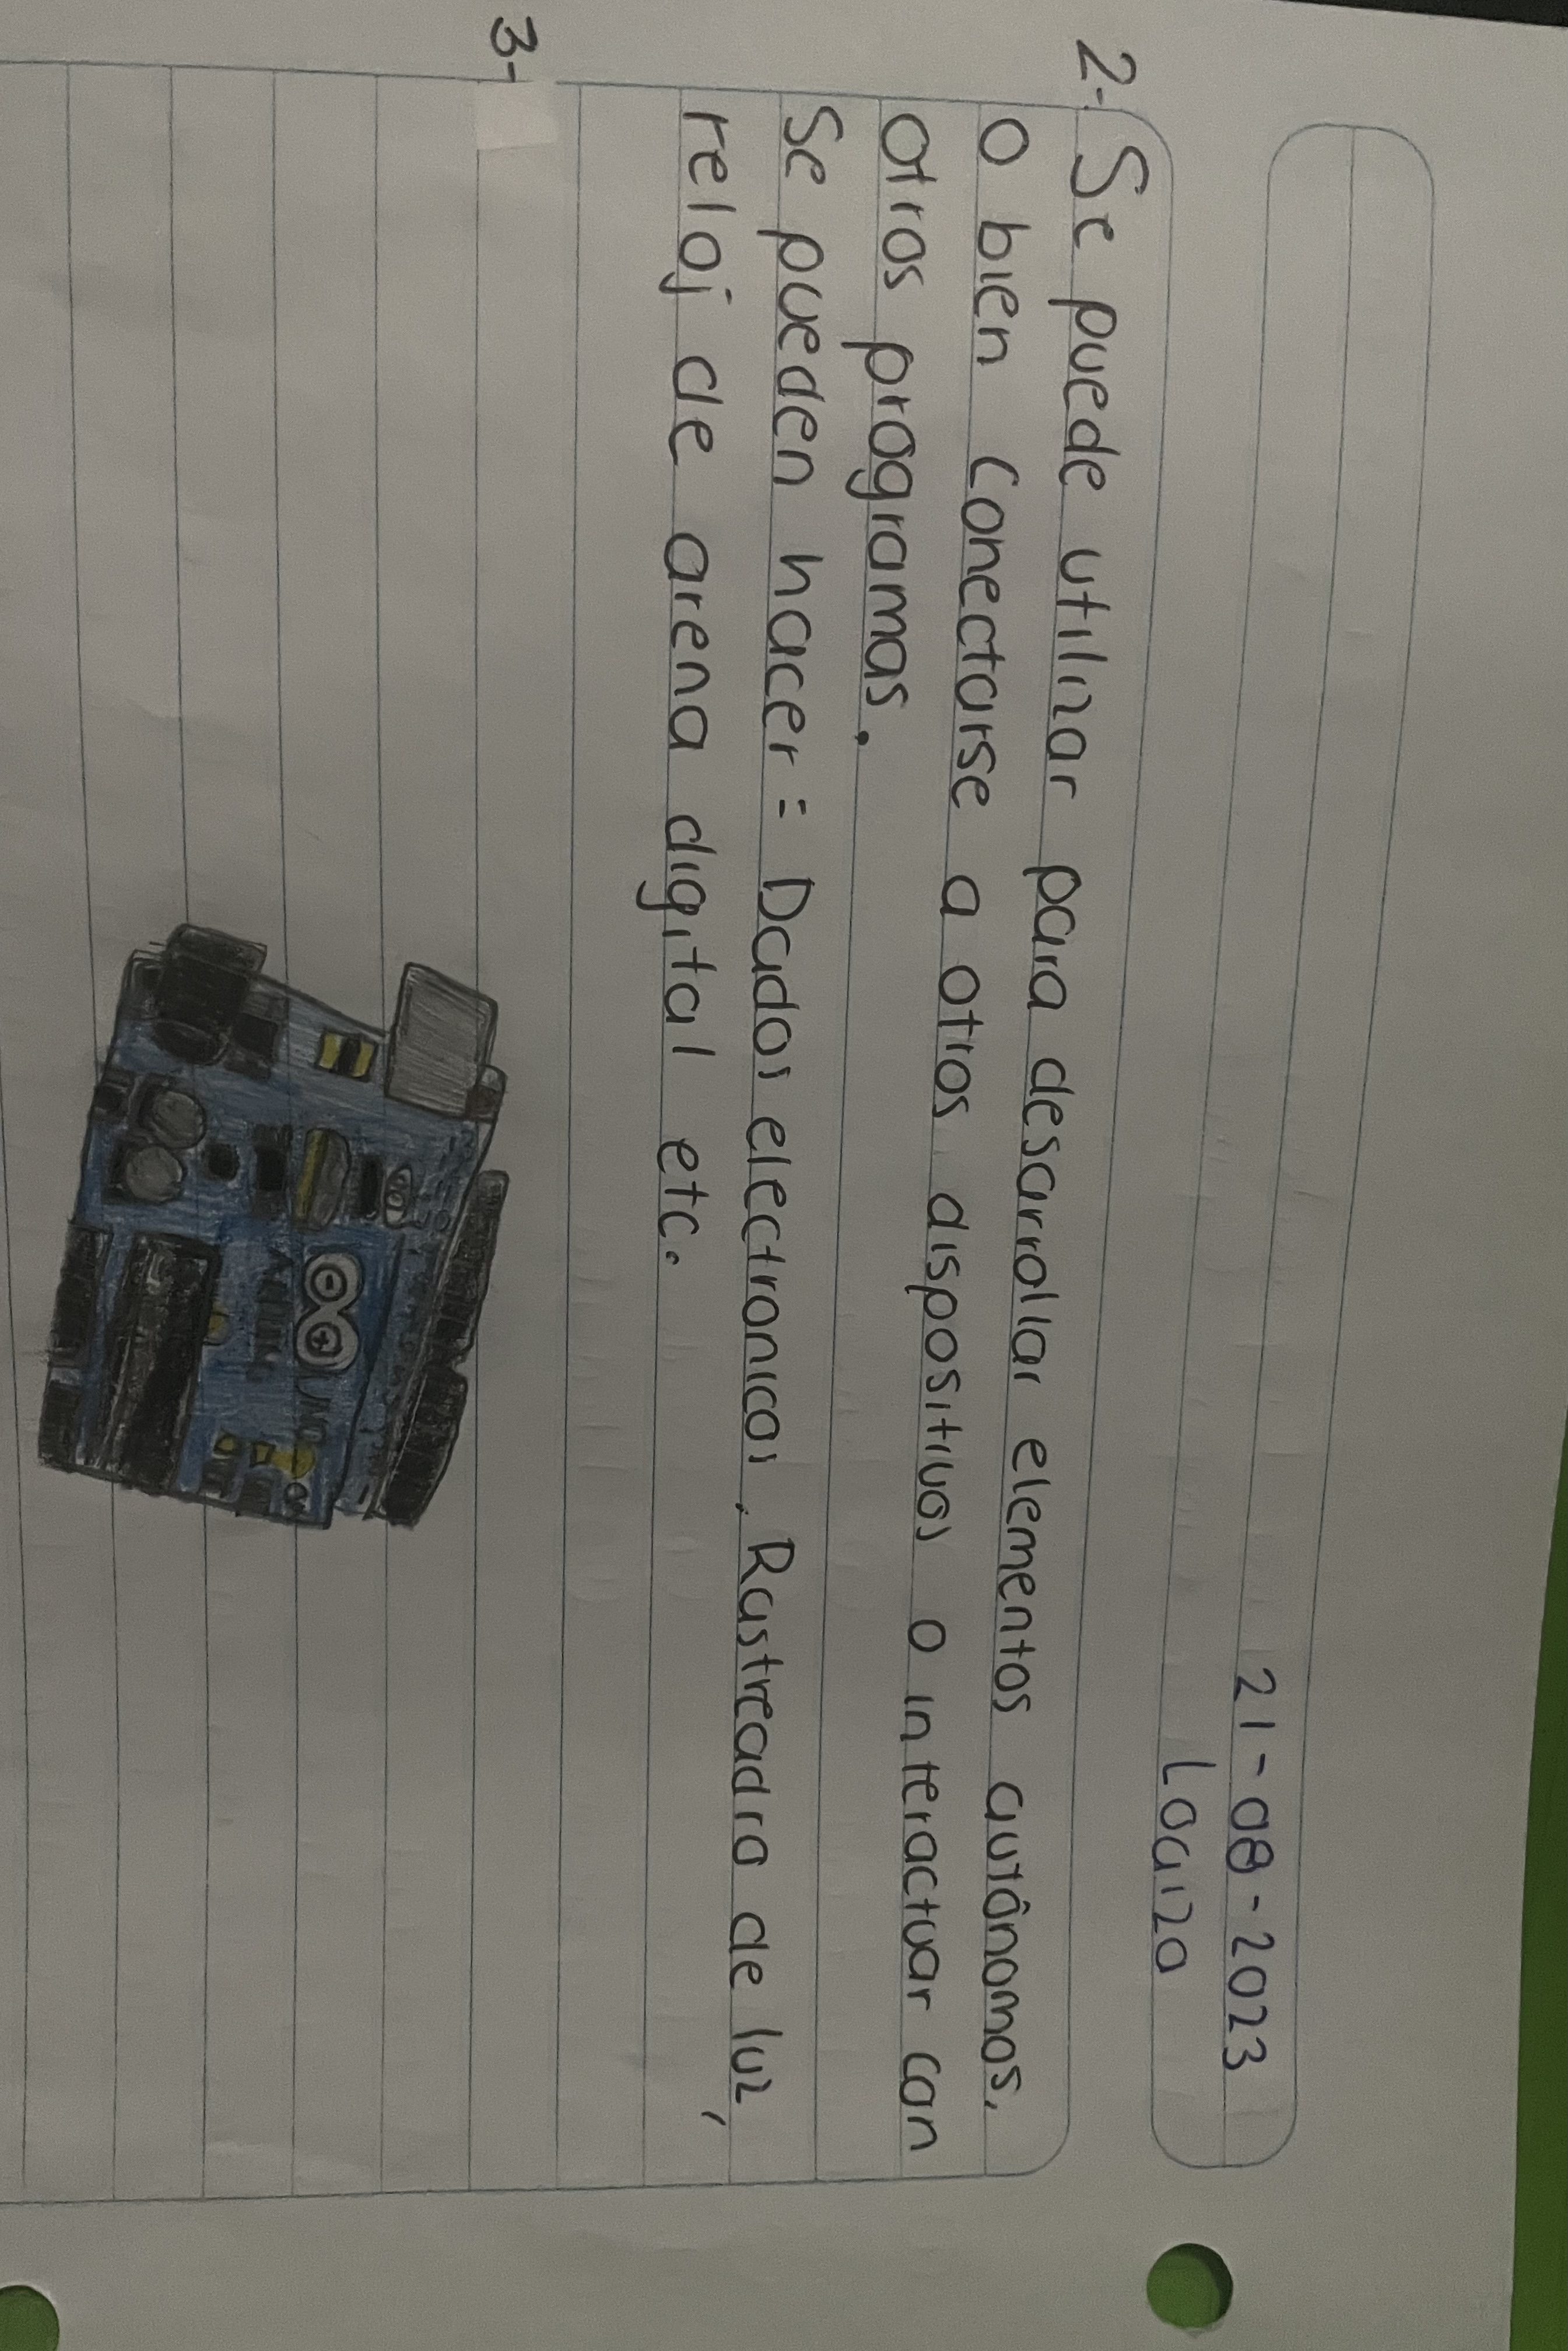 21-08-2023
Loaiza
2-. Se puede utilizar para desarrollar elementos autónomos,
o bien Conectarse a otros dispositivos o interactuar con
otros programas.
Se pueden hacer = Dados electronicos, Rastreadro de luz,
reloj de arena digital etc.
3-
UNO